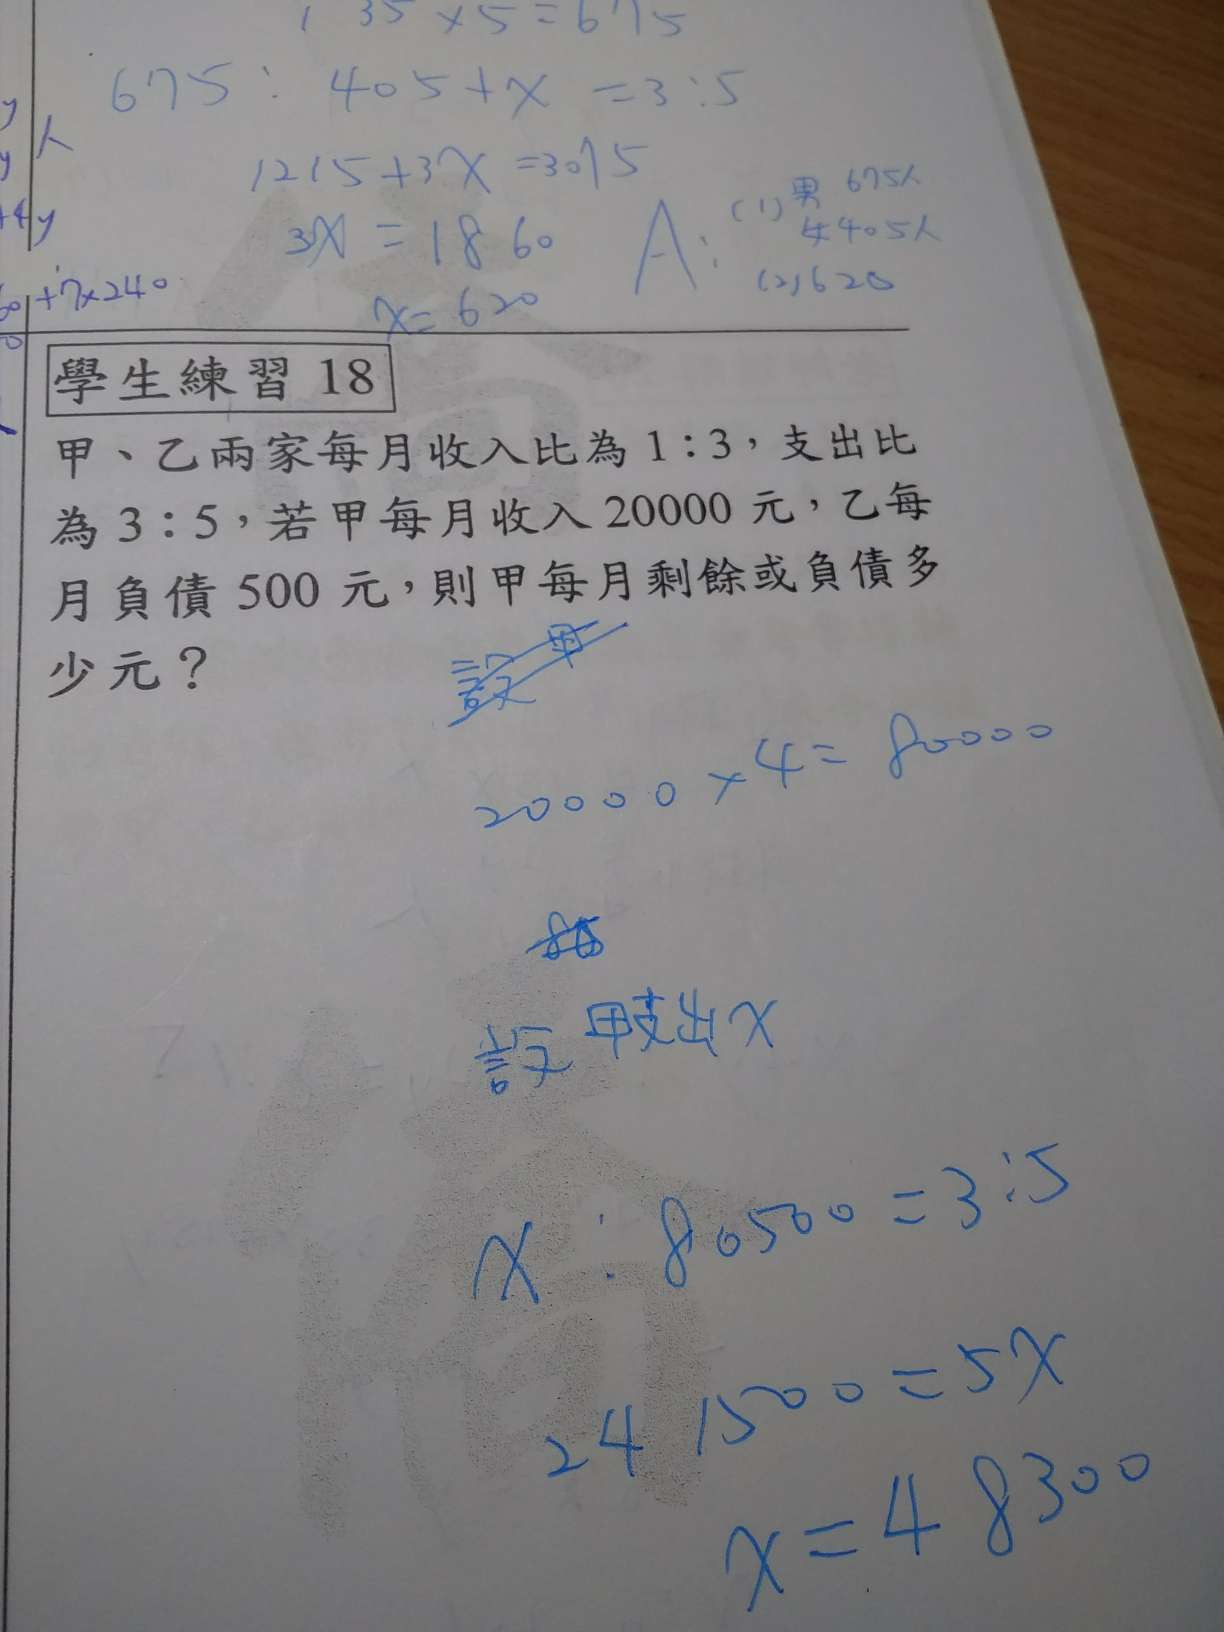 135×5=675
675：405+x=3：5
1215+3x=3075
3x=1860
x=620
A：(1)男 675人
女405人
(2)620
y
y 人
+4y
60+7×240
0
學生練習 18
甲、乙兩家每月收入比為 1：3，支出比
為 3：5，若甲每月收入 20000 元，乙每
月負債 500 元，則甲每月剩餘或負債多
少元？
設甲
20000×4=80000
設甲支出x
x：80500=3：5
241500=5x
x=48300